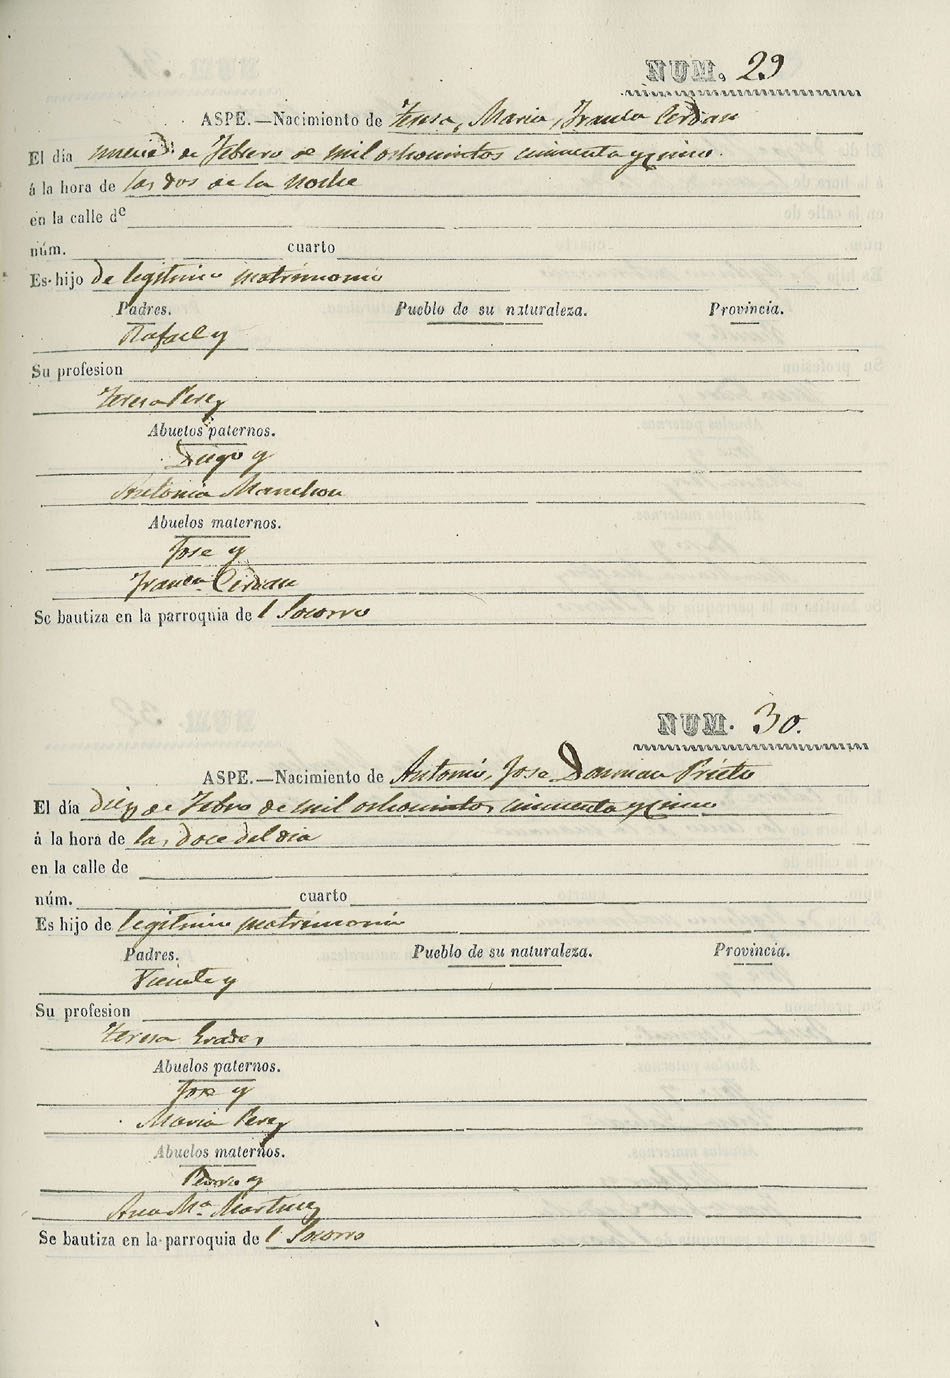 NUM. 29
ASPE.—Nacimiento de Teresa, Maria, Cerdan
El día nueve de Febrero de mil ochocientos cincuenta y cinco.
á la hora de las dos de la noche
en la calle de
núm. cuarto
Es hijo de legitimo matrimonio
Padres. Pueblo de su naturaleza. Provincia.
Rafael y
Su profesion
Teresa Perez
Abuelos paternos.
Diego y
Antonia Manchon
Abuelos maternos.
Jose y
Franca. Cerdan
Se bautiza en la parroquia de l Socorro
NUM. 30.
ASPE.—Nacimiento de Antonio, Jose Damian Prieto
El día diez de Febro de mil ochocientos cincuenta y cinco
á la hora de las doce del dia
en la calle de
núm. cuarto
Es hijo de legitimo matrimonio
Padres. Pueblo de su naturaleza. Provincia.
Vicente y
Su profesion
Teresa
Abuelos paternos.
Jose y
Maria Perez
Abuelos maternos.
Pedro y
Ana Ma. Martinez
Se bautiza en la parroquia de l Socorro